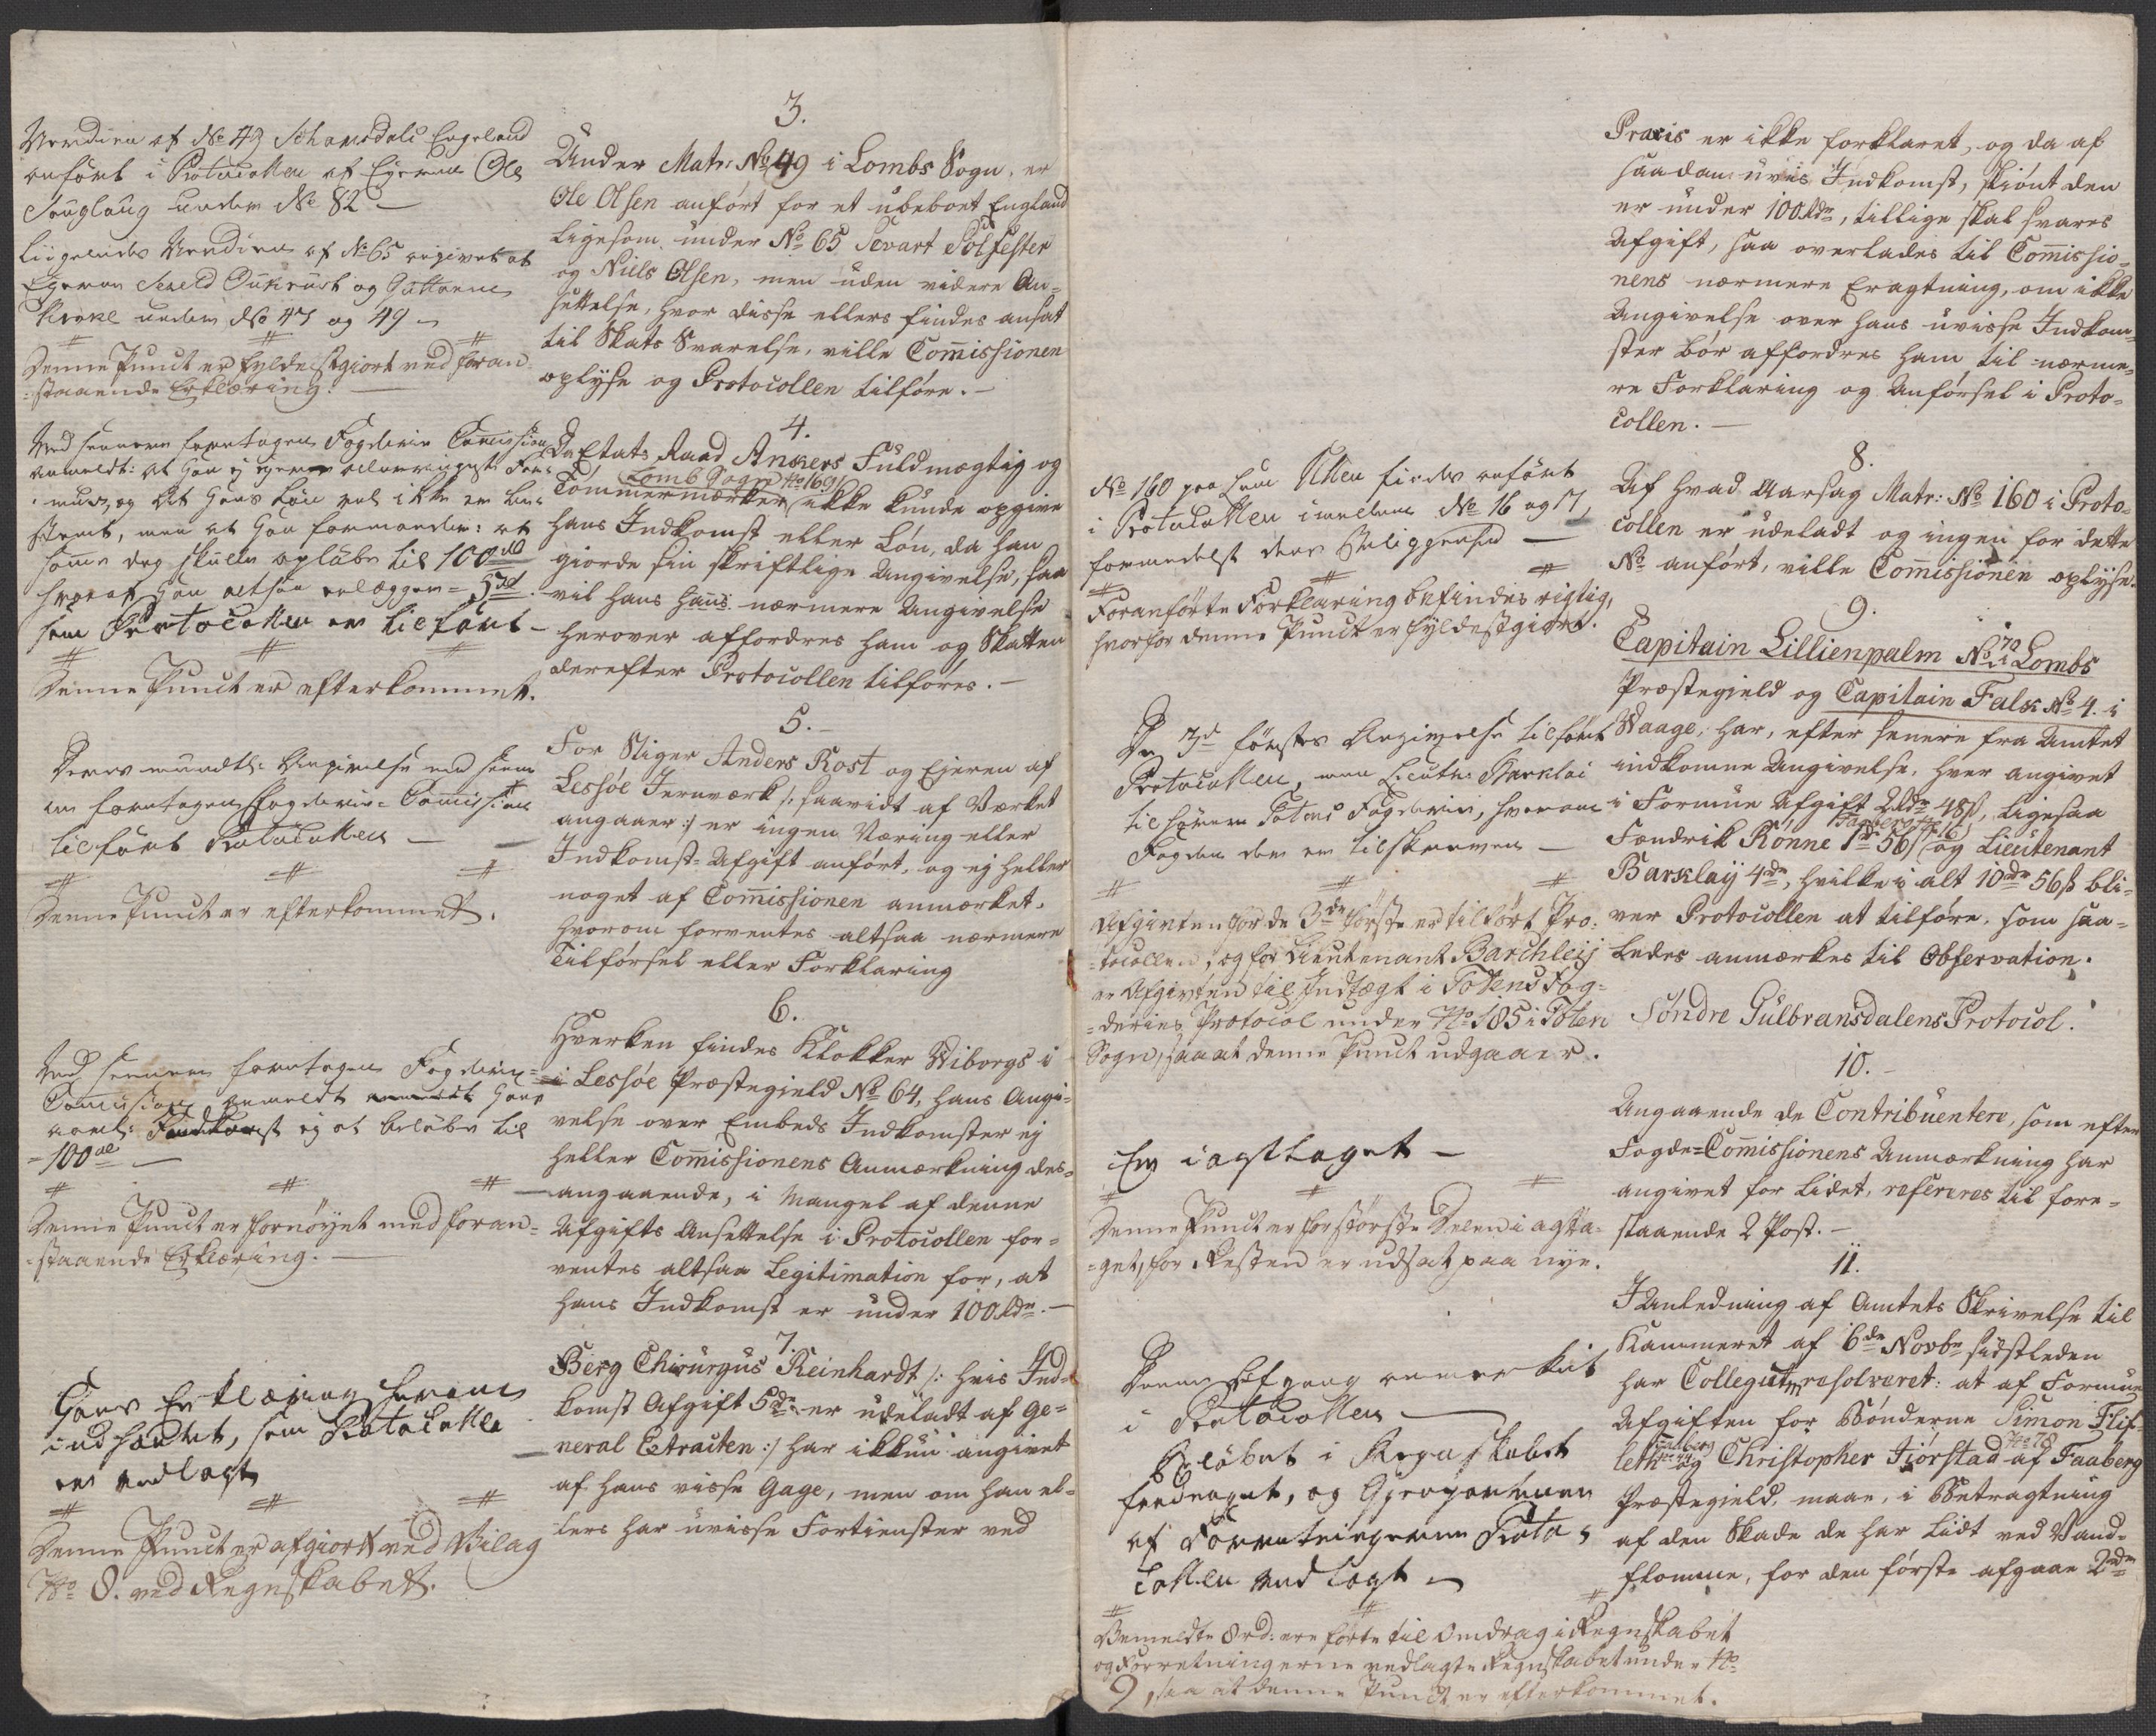 Verdien af No 49 Schamsdals Engeland
anfört i Protocollen af Egeren Ole
Sougloug under No 82 —
Liigeledes Verdien af No 65 angivet at
Egeren
under No 47 og 49 —
Denne Punct er fyldestgiort ved foran
=staaende Erklæring. —
Ved senere foretagen Fogderie Commission
anmeldt: at han ej ejer allerringeste For=
mue, og at hans Løn vel ikke er be=
stemt, men at han formoder: at
samme dog skulle opløbe til 100 rd
hvoraf han altsaa erlægger = 5 rd.
som Protocollen er tilført —
Denne Punct er efterkommet.
Deres mundtl: Angivelse ved seene=
re foretagen Fogderie= Commission
tilført Protocollen —
Denne Punct er efterkommet.
Ved seenere foretagen Fogderie=
Commission anmeldt hans
aarl: Indkomst ej at beløbe til
=100 rd —
Denne Punct er fornøyet med foran=
=staaende Erklæring. —
Hans Erklæring herom
indhæntet, som Protocollen
er vedlagt
Denne Punct er afgiort ved Bilag
No 8. ved Regnskabet.
3.
Under Matr: No 49 i Lombs Sogn, er
Ole Olsen anført for et ubeboet England
Ligesom under No 65 Sevart Solfester
og Niels Olsen, men uden videre An=
settelse, hvor disse ellers findes ansat
til Skats Svarelse, ville Commissionen
oplyse og Protocollen tilføre. —
4.
Da Etats Raad Ankers Fuldmægtig og
Lomb Sogn No 169
Tømmermærker ikke kunde opgive
hans Indkomst eller Løn, da han
giorde sin skriftlige Angivelse, saa
vil hans hans nærmere Angivelse
herover affordres ham og Skatten
derefter Protocollen tilføres. —
5. —
For Stiger Anders Rost og Ejeren af
Lessøe Jernværk /: saavidt af Værket
angaaer :/ er ingen Næring eller
Indkomst= Afgift anført, og ej heller
noget af Commissionen anmærket.
hvorom forventes altsaa nærmere
Tilførsel eller Forklaring
6.
Hverken findes Klokker Wiborgs i
i Lessøe Præstegield No 64, hans Angi=
velse over Embeds Indkomster ej
heller Commissionens Anmærkning des=
angaaende, i Mangel af denne
Afgifts Ansettelse i Protocollen for=
ventes altsaa Legitimation for, at
hans Indkomst er under 100 rdr. —
7.
Berg Chirurgus Reinhardt /: hvis Ind=
komst Afgift 5 dr er udeladt af Ge=
neral Extracten :/ har ikkun angivet
af hans visse Gage, men om han el=
lers har uvisse Fortienster ved
No 160 paa findes anført
i Protocollen imellem No 16 og 17,
formedelst dens Beliggenhed —
Foranførte Forklaring befindes rigtig,
hvorfor denne Punct er fyldestgiort.
De 3 d første Angivelse tilført
Protocollen, men Lieutn: Barklai
til hører Totens Fogderie, hvorom
Fogden der er tilskreven —
Afgivten for de 3de første er tilført Pro=
=tocollen, og for Lieutenant Barchleij
er Afgivten til Indtægt i Totens Fog=
=deries Protocol under No 185 i Toten
Sogn, saa at denne Punct udgaaer.
Er iagttaget —
Denne Punct er for største Delen iagtta=
=get, for Resten er udsat paa nye.
Denne Afgang anmerket
i Protocollen —
Beløbet i Regnskabet
fradraget, og Gienparterne
af Forretningerne Proto=
collen vedlagt —
Bemeldte 8 rd: ere førte til Omdrag i Regnskabet
og Forretningerne vedlagte Regnskabet under No
9, saa at denne Punct er efterkommet.
Praxis er ikke forklaret, og da af
saadan uvis Indkomst, skiønt den
er under 100 rdr, tillige skal svares
Afgift, saa overlades til Commissio=
nens nærmere Eragtning, om ikke
Angivelse over hans uvisse Indkom=
ster bør affordres ham, til nærme=
re Forklaring og Anførsel i Proto=
collen. —
8.
Af hvad Aarsag Matr: No 160 i Proto=
collen er udeladt og ingen for dette
No anført, ville Commissionen oplyse.
9.
Capitain Lillienpalm No 70 i Lombs
Præstegield og Capitain Falk No 4. i
Waage, har, efter senere fra Amtet
indkomne Angivelse, hver angivet
i Formue Afgift 2 rdr 48 s, ligesaa
Fændrik Rønne 1 dr 56 s og Lieutenant
Barklaij 4 dr, hvilke i alt 10 rdr 56 s bli=
ver Protocollen at tilføre, som saa=
ledes anmærkes til Observation.
Søndre Gulbransdalens Protocol.
10. —
Angaaende de Contribuentere, som efter
Fogde=Commissionens Anmærkning har
angivet for lidet, refereres til fore=
staaende 2 Post. —
11.
I Anledning af Amtets Skrivelse til
Kammeret af 6de Novbr sidstleden
har Collegium resolveret: at af Formue
Afgiften for Bønderne Simon Flif=
Faaberg No 44 No 78
leth og Christopher Jiørstad af Faaberg
Præstegield, maae, i Betragtning
af den Skade de har lidt ved Vand=
flomme, for den første afgaae 2 rdr